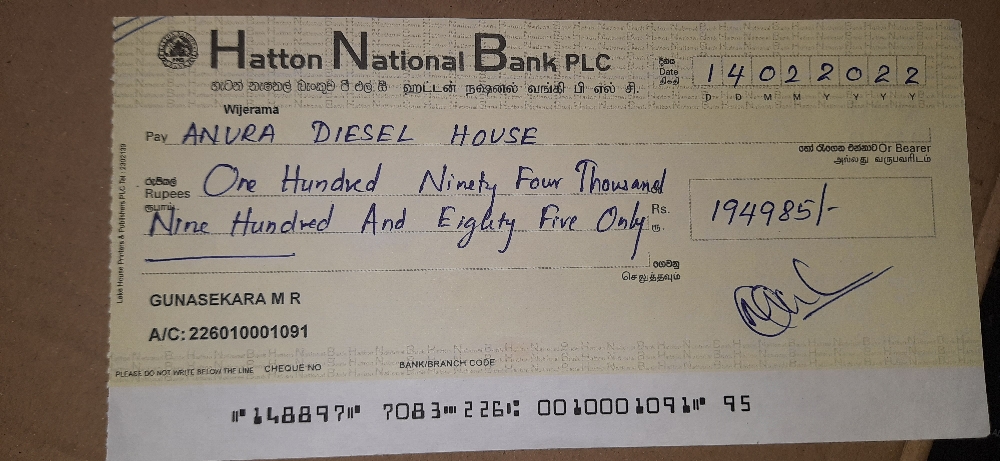 Hatton National Bank PLC
හැටන් නැෂනල් බෑංකුව පී එල් සී ஹட்டன் நஷனல் வங்கி பி எல் சி.
දිනය
Date
திகதி
1 4 0 2 2 0 2 2
D D M M Y Y Y Y
Wijerama
Pay ANURA DIESEL HOUSE
හෝ රැගෙන එන්නාට Or Bearer
அல்லது வருபவரிடம்
රුපියල්
Rupees
ரூபாய்
One Hundred Ninety Four Thousand
Nine Hundred And Eighty Five Only
Rs.
රු.
194985/-
ගෙවනු
செலுத்தவும்
GUNASEKARA M R
A/C: 226010001091
PLEASE DO NOT WRITE BELOW THE LINE CHEQUE NO BANK/BRANCH CODE
⑈148897⑈ 7083⑉226⑆ 0010001091⑈ 95
Lake House Printers & Publishers PLC Tel : 2302139